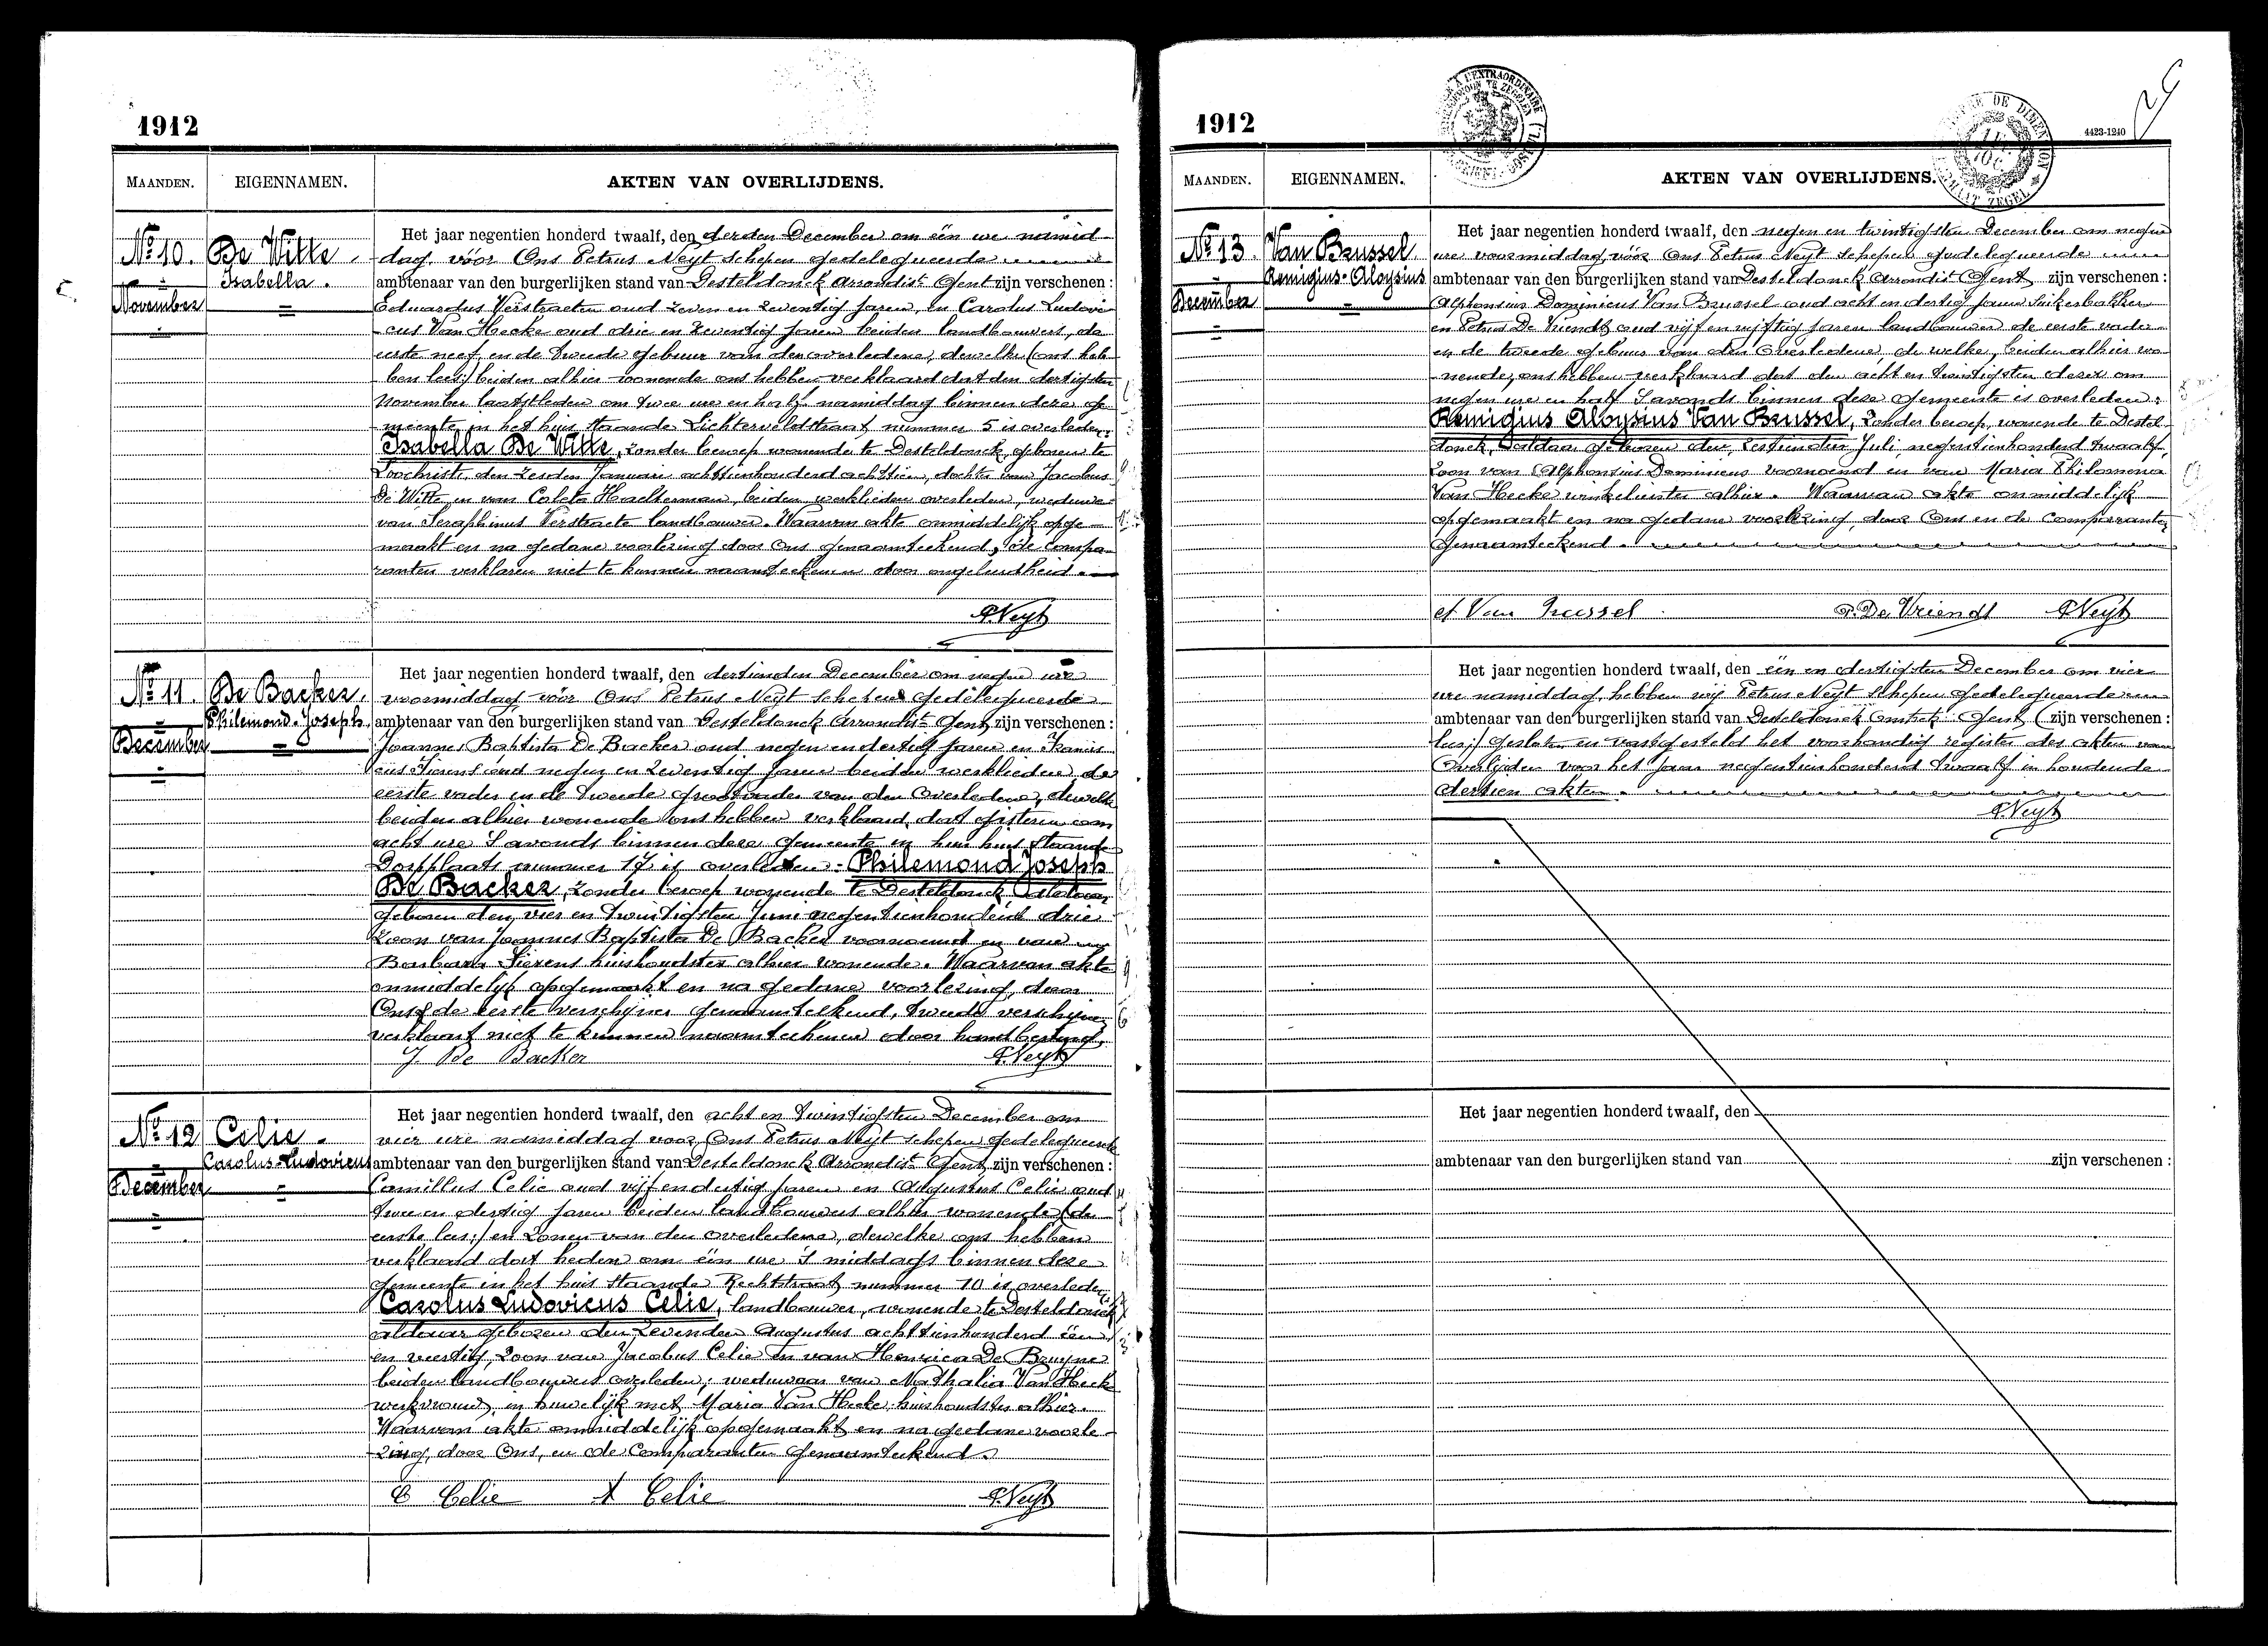 1912
MAANDEN. EIGENNAMEN. AKTEN VAN OVERLIJDENS.
Nº 10. De Witte
Isabella.
November
Het jaar negentien honderd twaalf, den derden December om één ure namid-
dag, vóór Ons Petrus Neyt schepen gedelegueerde
ambtenaar van den burgerlijken stand van Desteldonck Arrondist Gent zijn verschenen :
Eduardus Verstraeten oud zeven en zeventig jaren, en Carolus Ludovi-
cus Van Hecke oud drie en zeventig jaren beiden landbouwers, de
eerste neef en de tweede gebuur van den overledene, dewelke (ons heb-
ben lees:) beiden alhier wonende ons hebben verklaard dat den dertigsten
November laatstleden om twee ure en half namiddag binnen deze ge-
meente in het huis staande Lichterveldstraat nummer 5 is overleden:
Isabella De Witte, zonder beroep wonende te Desteldonck, geboren te
Loochristi, den zesden Januari achttienhonderd achttien, dochter van Jacobus
De Witte en van Coleta Haelterman, beiden werklieden overleden, weduwe
van Seraphinus Verstraete landbouwer. Waarvan akte onmiddelijk opge-
maakt en na gedane voorlezing door Ons genaamteekend, de compa-
ranten verklaren niet te kunnen naamteekenen door ongeleerdheid.
P. Neyt
Nº 11. De Backer,
Philemond-Joseph
December
Het jaar negentien honderd twaalf, den dertienden December om negen ure
voormiddag, vóór Ons Petrus Neyt schepen gedelegueerde
ambtenaar van den burgerlijken stand van Desteldonck Arrondist Gent zijn verschenen :
Joannes Baptista De Backer oud negen en dertig jaren en Francis-
cus Sierens oud negen en zeventig jaren beiden werklieden de
eerste vader en de tweede grootvader van den overledene, dewelke
beiden alhier wonende ons hebben verklaard, dat gisteren om
acht ure 's avonds binnen deze gemeente in hun huis staande
Dorpplaats nummer 17 is overleden: Philemond Joseph
De Backer, zonder beroep wonende te Desteldonck aldaar
geboren den vier en twintigsten Juni negentienhonderd drie
zoon van Joannes Baptista De Backer voornoemd en van
Barbara Sierens huishoudster alhier wonende. Waarvan akte
onmiddelijk opgemaakt en na gedane voorlezing, door
Ons & de eerste verschijner genaamteekend, tweede verschijner
verklaart niet te kunnen naamteekenen door handbeving.
J. De Backer P. Neyt
Nº 12 Celie
Carolus-Ludovicus
December
Het jaar negentien honderd twaalf, den acht en twintigsten December om
vier ure namiddag voor Ons Petrus Neyt schepen gedelegueerde
ambtenaar van den burgerlijken stand van Desteldonck Arrondist Gent zijn verschenen :
Camillus Celie oud vijf en dertig jaren en Augustus Celie oud
twee en dertig jaren beiden landbouwers alhier wonende (de
eerste lees:) en zonen van den overledene, dewelke ons hebben
verklaard dat heden om één ure 's middags binnen deze
gemeente in het huis staande Rechtstraat nummer 10 is overleden:
Carolus Ludovicus Celie, landbouwer, wonende te Desteldonck
aldaar geboren den zevenden Augustus achttienhonderd één
en veertig, zoon van Jacobus Celie en van Henrica De Bruyne
beiden landbouwers overleden, weduwaar van Nathalia Van Hecke
werkvrouw, in huwelijk met Maria Van Hecke huishoudster alhier.
Waarvan akte onmiddelijk opgemaakt en na gedane voorle-
zing, door Ons, en de Comparanten genaamteekend.
C Celie A Celie P. Neyt
1912
4423-1240
MAANDEN. EIGENNAMEN. AKTEN VAN OVERLIJDENS.
Nº 13. Van Brussel
Remigius-Aloysius
December
Het jaar negentien honderd twaalf, den negen en twintigsten December om negen
ure voormiddag vóór Ons Petrus Neyt schepen gedelegueerde
ambtenaar van den burgerlijken stand van Desteldonck Arrondist Gent zijn verschenen :
Alphonsius Dominicus Van Brussel oud acht en dertig jaren suikerbakker
en Petrus De Vriendt oud vijf en vijftig jaren landbouwer de eerste vader
en de tweede gebuur van den overledene de welke, beiden alhier wo-
nende, ons hebben verklaard dat den acht en twintigsten dezer om
negen ure en half 's avonds binnen deze gemeente is overleden:
Remigius Aloysius Van Brussel, zonder beroep, wonende te Destel-
donck, aldaar geboren den zestienden Juli negentienhonderd twaalf,
zoon van Alphonsius Dominicus voornoemd en van Maria Philomena
Van Hecke winkelierster alhier. Waarvan akte onmiddelijk
opgemaakt en na gedane voorlezing, door Ons en de Comparanten
genaamteekend.
A Van Brussel P. De Vriendt P. Neyt
Het jaar negentien honderd twaalf, den één en dertigsten December om vier
ure namiddag, hebben wij Petrus Neyt schepen gedelegueerde
ambtenaar van den burgerlijken stand van Desteldonck Gent, (zijn verschenen :
lees:) gesloten en vastgesteld het voorhandig register der akten van
Overlijden voor het jaar negentienhonderd twaalf inhoudende
dertien akten.
P. Neyt
Het jaar negentien honderd twaalf, den
ambtenaar van den burgerlijken stand van zijn verschenen :